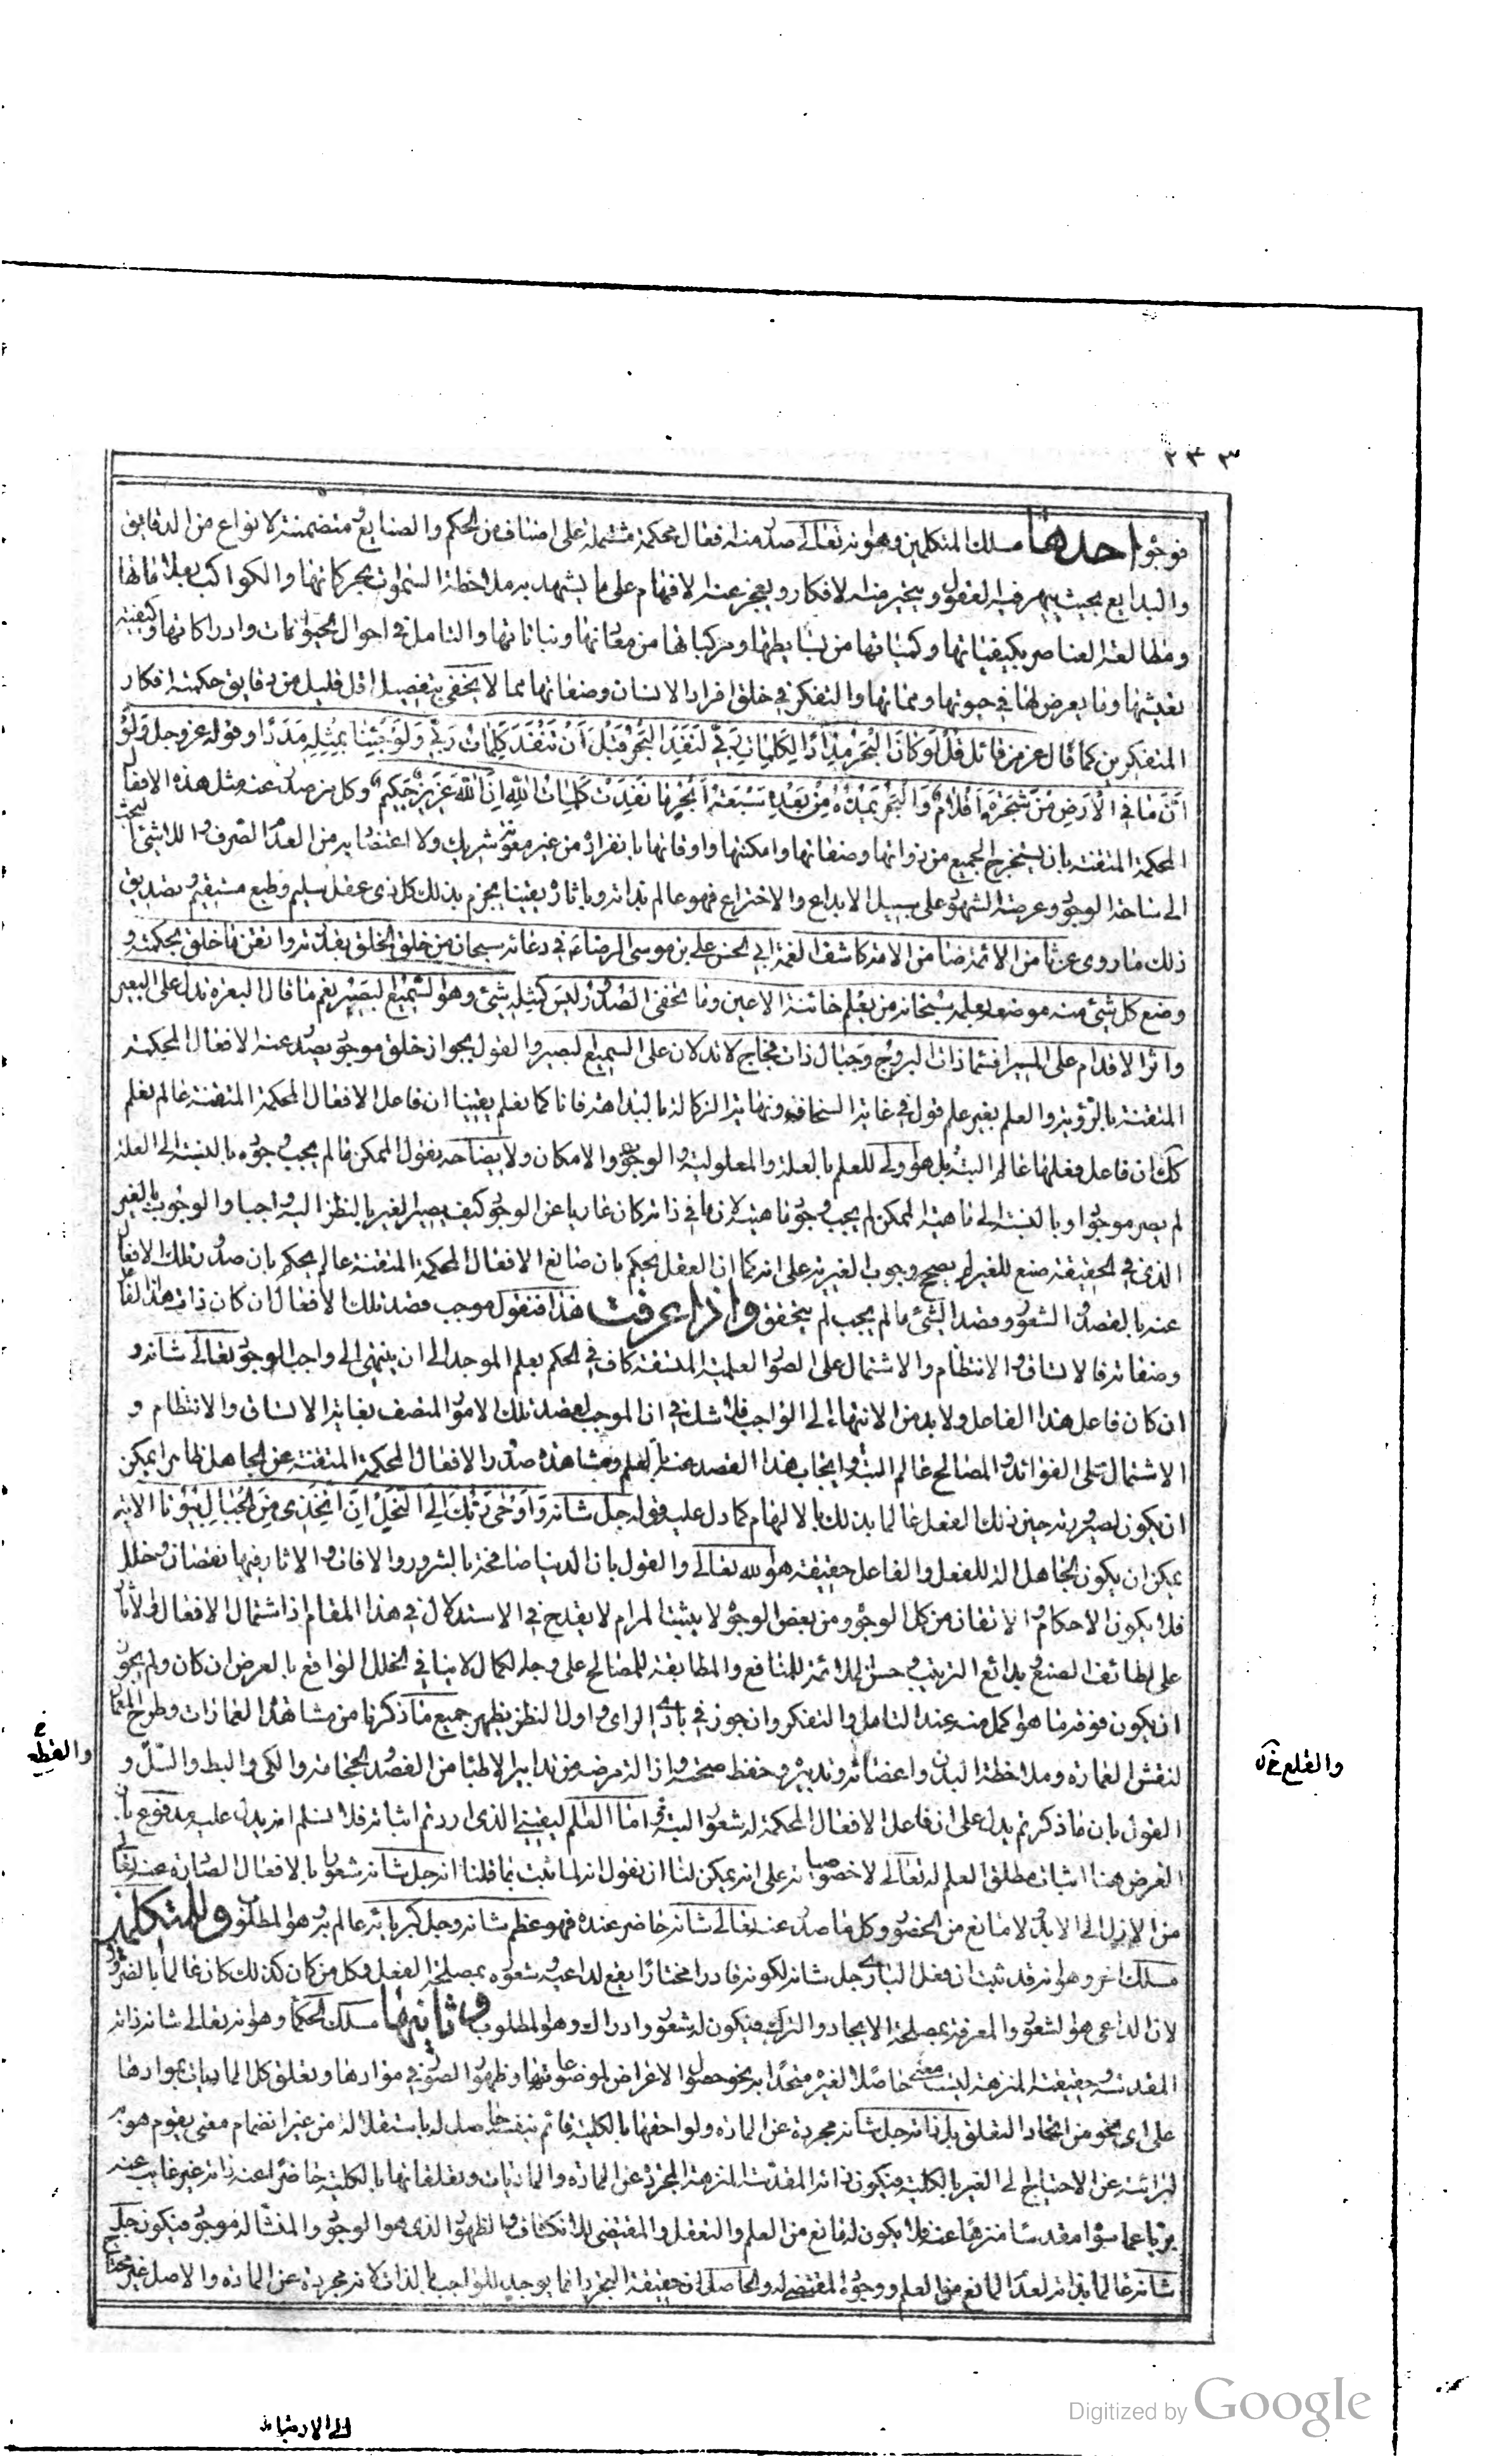 ٢٣٣
فوجوه احدها مسلك المتكلمين وهو انه تعالى صدر منه افعال محكمة مشتملة على اصناف من الحكم والصنايع متضمنة لانواع من الدقايق
والبدايع بحيث يبهر فيه العقول ويتحير منه الافكار ويعجز عنه الافهام على ما يشهد به ملاحظة السموات بحركاتها والكواكب بعلاماتها
ومطالعة العناصر بكيفياتها وكمياتها من بسايطها ومركباتها من معادنها ونباتاتها والتامل في احوال الحيوانات وادراكاتها وكيفية
تعيشها وما يعرض لها في حيوتها ومماتها والتفكر في خلق افراد الانسان وصفاتها مما لا يخفى بتفصيل اقل قليل من دقايق حكمته افكار
المتفكرين كما قال عز من قائل قُلْ لَوْ كَانَ الْبَحْرُ مِدَاداً لِكَلِمَاتِ رَبِّي لَنَفِدَ الْبَحْرُ قَبْلَ اَنْ تَنْفَدَ كَلِمَاتُ رَبِّي وَلَوْ جِئْنَا بِمِثْلِهِ مَدَداً وقوله عز وجل وَلَوْ
اَنَّ مَا فِي الْاَرْضِ مِنْ شَجَرَةٍ اَقْلَامٌ وَالْبَحْرُ يَمُدُّهُ مِنْ بَعْدِهِ سَبْعَةُ اَبْحُرٍ مَا نَفِدَتْ كَلِمَاتُ اللّٰهِ اِنَّ اللّٰهَ عَزِيزٌ حَكِيمٌ وكل من صدر عنه مثل هذه الافعال
المحكمة المتقنة بان يستخرج الجميع من ذواتها وصفاتها وامكنتها واوقاتها بانفراده من غير معونة شريك ولا اعتضاد به من العدم الصرف واللاشئ البحت
الى ساحة الوجود وعرصة الشهود على سبيل الابداع والاختراع فهو عالم بذاته وباثاره يقينا يجزم بذلك كل ذى عقل سليم وطبع مستقيم يصديق
ذلك ما روى عن ثامن الائمة ضامن الامة كاشف الغمة ابي الحسن علي بن موسى الرضا ع في دعائه سبحان من خلق الخلق بقدرته واتقن ما خلق بحكمته و
وضع كل شئ منه موضعه بعلمه سبحانه من يعلم خائنة الاعين وما تخفى الصدور ليس كمثله شئ وهو السميع البصير نعم ما قال البعرة تدل على البعير
واثر الاقدام على المسير افسماء ذات البروج وجبال ذات فجاج لا تدلان على السميع البصير والقول بجواز خلق موجود يصدر عنه الافعال المحكمة
المتقنة بالرؤية والعلم بغير علم قول في غاية السخافة ونهاية الركالة بالبداهة فانا كما نعلم يقينا ان فاعل الافعال المحكمة المتقنة عالم نعلم
كك ان فاعل فعلها عالم البتة بل هو اولى للعلم بالعلة والمعلولية والوجوب والامكان ولايضاحه نقول الممكن ما لم يجب وجوده بالنسبة الى العلة
لم يصر موجودا وبالنسبة الى ماهية الممكن لم يجب وجود ماهيته لان ما في ذاته كان عاريا عن الوجود كيف يصير الغير بالنظر اليه واجبا والوجوب بالغير
الذي في الحقيقة صنع للغير لم يصح وجوب الغير به على انه كما ان العقل يحكم بان صانع الافعال المحكمة المتقنة عالم يحكم بان صدور تلك الافعال
عنه بالقصد والشعور وقصد الشئ ما لم يجب لم يتحقق واذا عرفت هذا فنقول موجب قصد تلك الافعال ان كان ذات هذا الفاعل
وصفاته فالاتساق والانتظام والاشتمال على الصور العلمية المتسقة كاف في الحكم بعلم الموجد الى ان ينتهى الى واجب الوجود تعالى شانه و
ان كان فاعل هذا الفاعل ولا بد من الانتهاء الى الواجب فلا شك في ان الموجب لقصد تلك الامور المتصف بغاية الاتساق والانتظام و
الاشتمال على الفوائد والمصالح عالم البتة وايجاب هذا القصد عنه بالعلم ومشاهدة صدور الافعال المحكمة المتقنة عن الجاهل ظاهرا يمكن
ان يكون لصيرورته حين ذلك الفعل عالما بذلك بالالهام كما دل عليه قوله جل شانه وَاَوْحَى رَبُّكَ اِلَى النَّحْلِ اَنِ اتَّخِذِي مِنَ الْجِبَالِ بُيُوتاً الاية
يمكن ان يكون الجاهل الة للفعل والفاعل حقيقة هو الله تعالى والقول بان الدنيا ضامخة بالشرور والافات والاثار فيها نقصان وخلل
فلا يكون الاحكام والاتقان من كل الوجوه ومن بعض الوجوه لا يثبت المرام لا يقدح في الاستدلال في هذا المقام اذ اشتمال الافعال والاثار
على لطائف الصنع وبدائع الترتيب وحسن الملائمة للمنافع والمطابقة للمصالح على وجه الكمال لا ينافي الخلل الواقع بالعرض ان كان ولم يجوز
ان يكون فوقه ما هو اكمل منه عند التامل والتفكر وان جوز في بادى الراى واول النظر يظهر جميع ما ذكرنا من مشاهدة العمارات وطرح المعمار
لنقش العمارة وملاحظة البدن واعضائه وتدبيره وحفظ صحته وازالة مرضه من تدابير الاطباء من الفصد والحجامة والكى والبط والسل و
القول بان ما ذكرتم يدل على ان فاعل الافعال المحكمة له شعور البتة واما العلم اليقيني الذى اردتم اثباته فلا نسلم انه يدل عليه مدفوع بان
الغرض هنا اثبات مطلق العلم له تعالى لا خصوصياته على انه يمكن لنا ان نقول انه لما ثبت بما قلنا انه جل شانه شعورا بالافعال الصادرة عنه تعالى
من الازل الى الابد لا مانع من الحضور وكل ما صدر عنه تعالى شانه حاضر عنده فهو عظم شانه وجل كبريائه عالم به وهو المطلوب وللمتكلمين
مسلك اخر وهو انه قد ثبت ان فعل البارى جل شانه لكونه قادرا مختارا يقع لداعيه وشعوره بمصلحة الفعل وكل من كان كذلك كان عالما بالضرورة
لان الداعى هو الشعور والمعرفة بمصلحة الايجاد والترك فيكون له شعور وادراك وهو المطلوب وثانيها مسلك الحكماء وهو انه تعالى شانه ذاته
المقدسة وحقيقته المنزهة ليست معنى حاصلا لغيره متحدا به نحو حصول الاعراض لموضوعاتها وظهور الصور في موادها وتعلق كل الماديات بموادها
على اى نحو من انحاء التعلق بل ذاته جل شانه مجردة عن المادة ولواحقها بالكلية قائم بنفسه حاصل له باستقلاله من غير انضمام معنى يقوم هو به
لبرائته عن الاحتياج الى الغير بالكلية فيكون ذاته المقدسة المنزهة المجردة عن المادة والماديات وتعلقاتها بالكلية حاضرا عند ذاته غير غايب عنه
بريا عما سواه مقدسا منزها عنه فلا يكون له مانع من العلم والتعقل والمقتضى للانكشاف والظهور الذى هو الوجود والمنشا له موجود فيكون جل
شانه عالما بذاته لعدم المانع من العلم ووجود المقتضى له والحاصل ان حقيقة التجرد انما يوجد للواجب بالذات لانه مجردة عن المادة والاصل غير محتاج
والقلع خ ل
والقطع خ
الى الارضاء
Digitized by Google